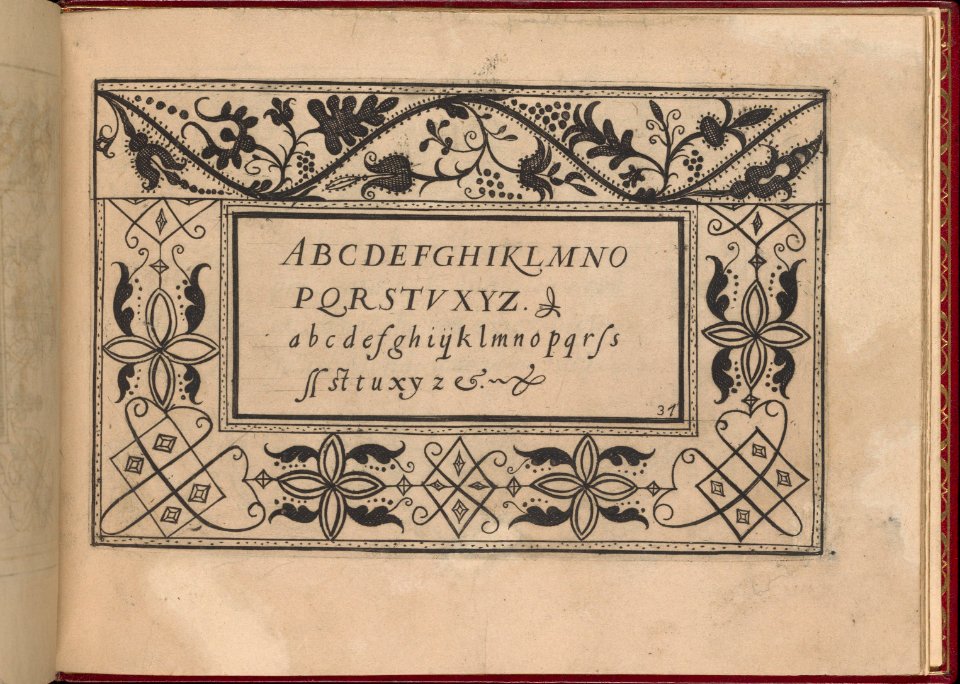 ABCDEFGHIKLMNO
PQRSTVXYZ. &
abcdefghiÿklmnopqrſs
ſſ ſt t u x y z &.
37